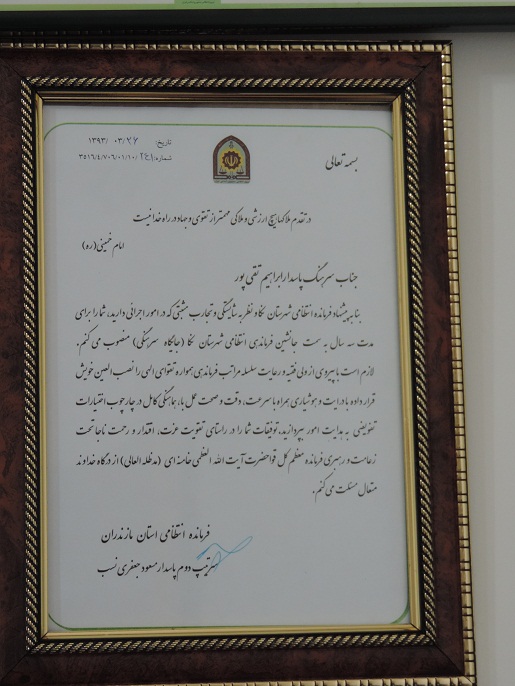 بسمه تعالی
تاریخ: ۱۳۹۳/۰۳/۲۷
شماره: ۳۵۱۶/۴/۷۰۶/۰۱/۱۰/۲۴۱
در تقدم ملاکها هیچ ارزشی و ملاکی مهمتر از تقوی و جهاد در راه خدا نیست
امام خمینی(ره)
جناب سرهنگ پاسدار ابراهیم تقی پور
بنا به پیشنهاد فرمانده انتظامی شهرستان نکا و نظر به شایستگی و تجارب مثبتی که در امور اجرائی دارید، شما را برای
مدت سه سال به سمت جانشین فرماندهی انتظامی شهرستان نکا (جایگاه سرهنگی) منصوب می کنم.
لازم است با پیروی از ولی فقیه و رعایت سلسله مراتب فرماندهی همواره تقوای الهی را نصب العین خویش
قرار داده با درایت و هوشیاری همراه با سرعت، دقت و صحت عمل با هماهنگی کامل در چارچوب اختیارات
تفویضی به هدایت امور بپردازید، توفیقات شما را در راستای تقویت عزت، اقتدار و رحمت ناجا تحت
زعامت و رهبری فرمانده معظم کل قوا حضرت آیت الله العظمی خامنه ای (مدظله العالی) از درگاه خداوند
متعال مسئلت می کنم.
فرمانده انتظامی استان مازندران
سرتیپ دوم پاسدار مسعود جعفری نسب